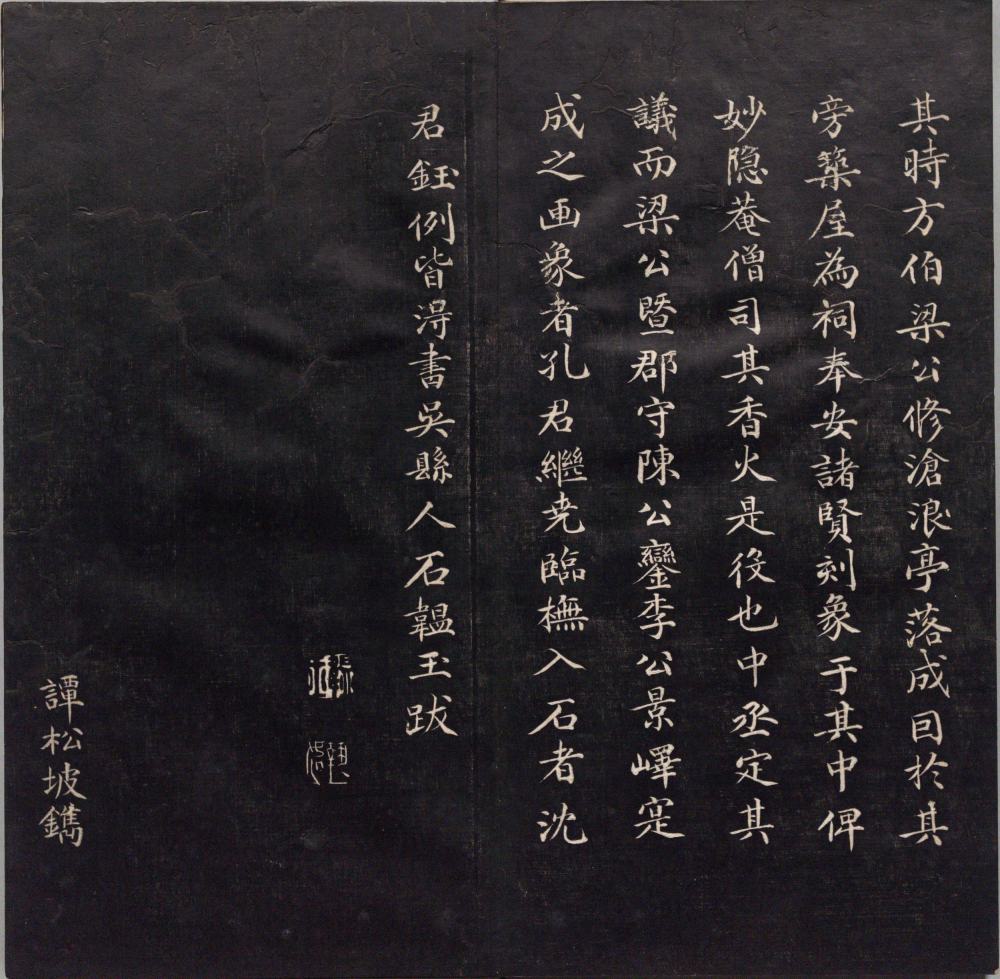 其時方伯梁公修滄浪亭落成因於其
旁築屋為祠奉安諸賢刻象于其中俾
妙隐菴僧司其香火是役也中丞定其
議而梁公暨郡守陳公鑾李公景嶧寔
成之画象者孔君繼尭臨橅入石者沈
君鈺例皆淂書吳縣人石韞玉跋
譚松坡鐫